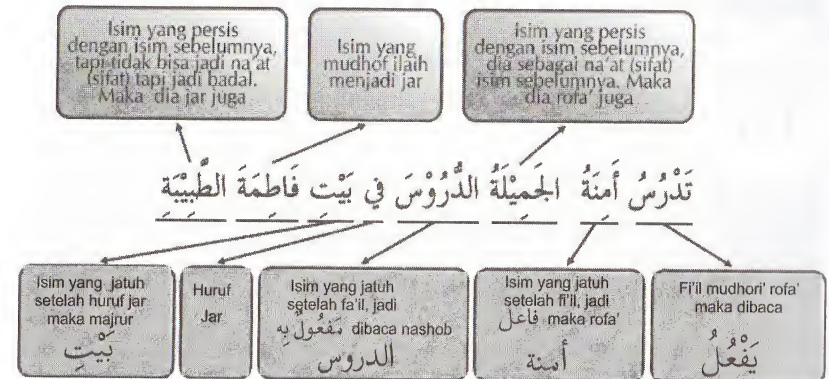 Isim yang persis
dengan isim sebelumnya,
tapi tidak bisa jadi na'at
(sifat) tapi jadi badal.
Maka dia jar juga
Isim yang
mudhof ilaih
menjadi jar
Isim yang persis
dengan isim sebelumnya,
dia sebagai na'at (sifat)
isim sebelumnya. Maka
dia rofa' juga
تَدْرُسُ أَمِنَةُ الجَمِيْلَةُ الدُّرُوْسَ فِي بَيْتِ فَاطِمَةَ الطَّبِيْبَةِ
Isim yang jatuh
setelah huruf jar
maka majrur
بَيْتِ
Huruf
Jar
Isim yang jatuh
setelah fa'il, jadi
مَفْعُولٌ بِهِ dibaca nashob
الدروس
Isim yang jatuh
setelah fi'il, jadi
فاعل maka rofa'
أمنة
Fi'il mudhori' rofa'
maka dibaca
يَفْعُلُ